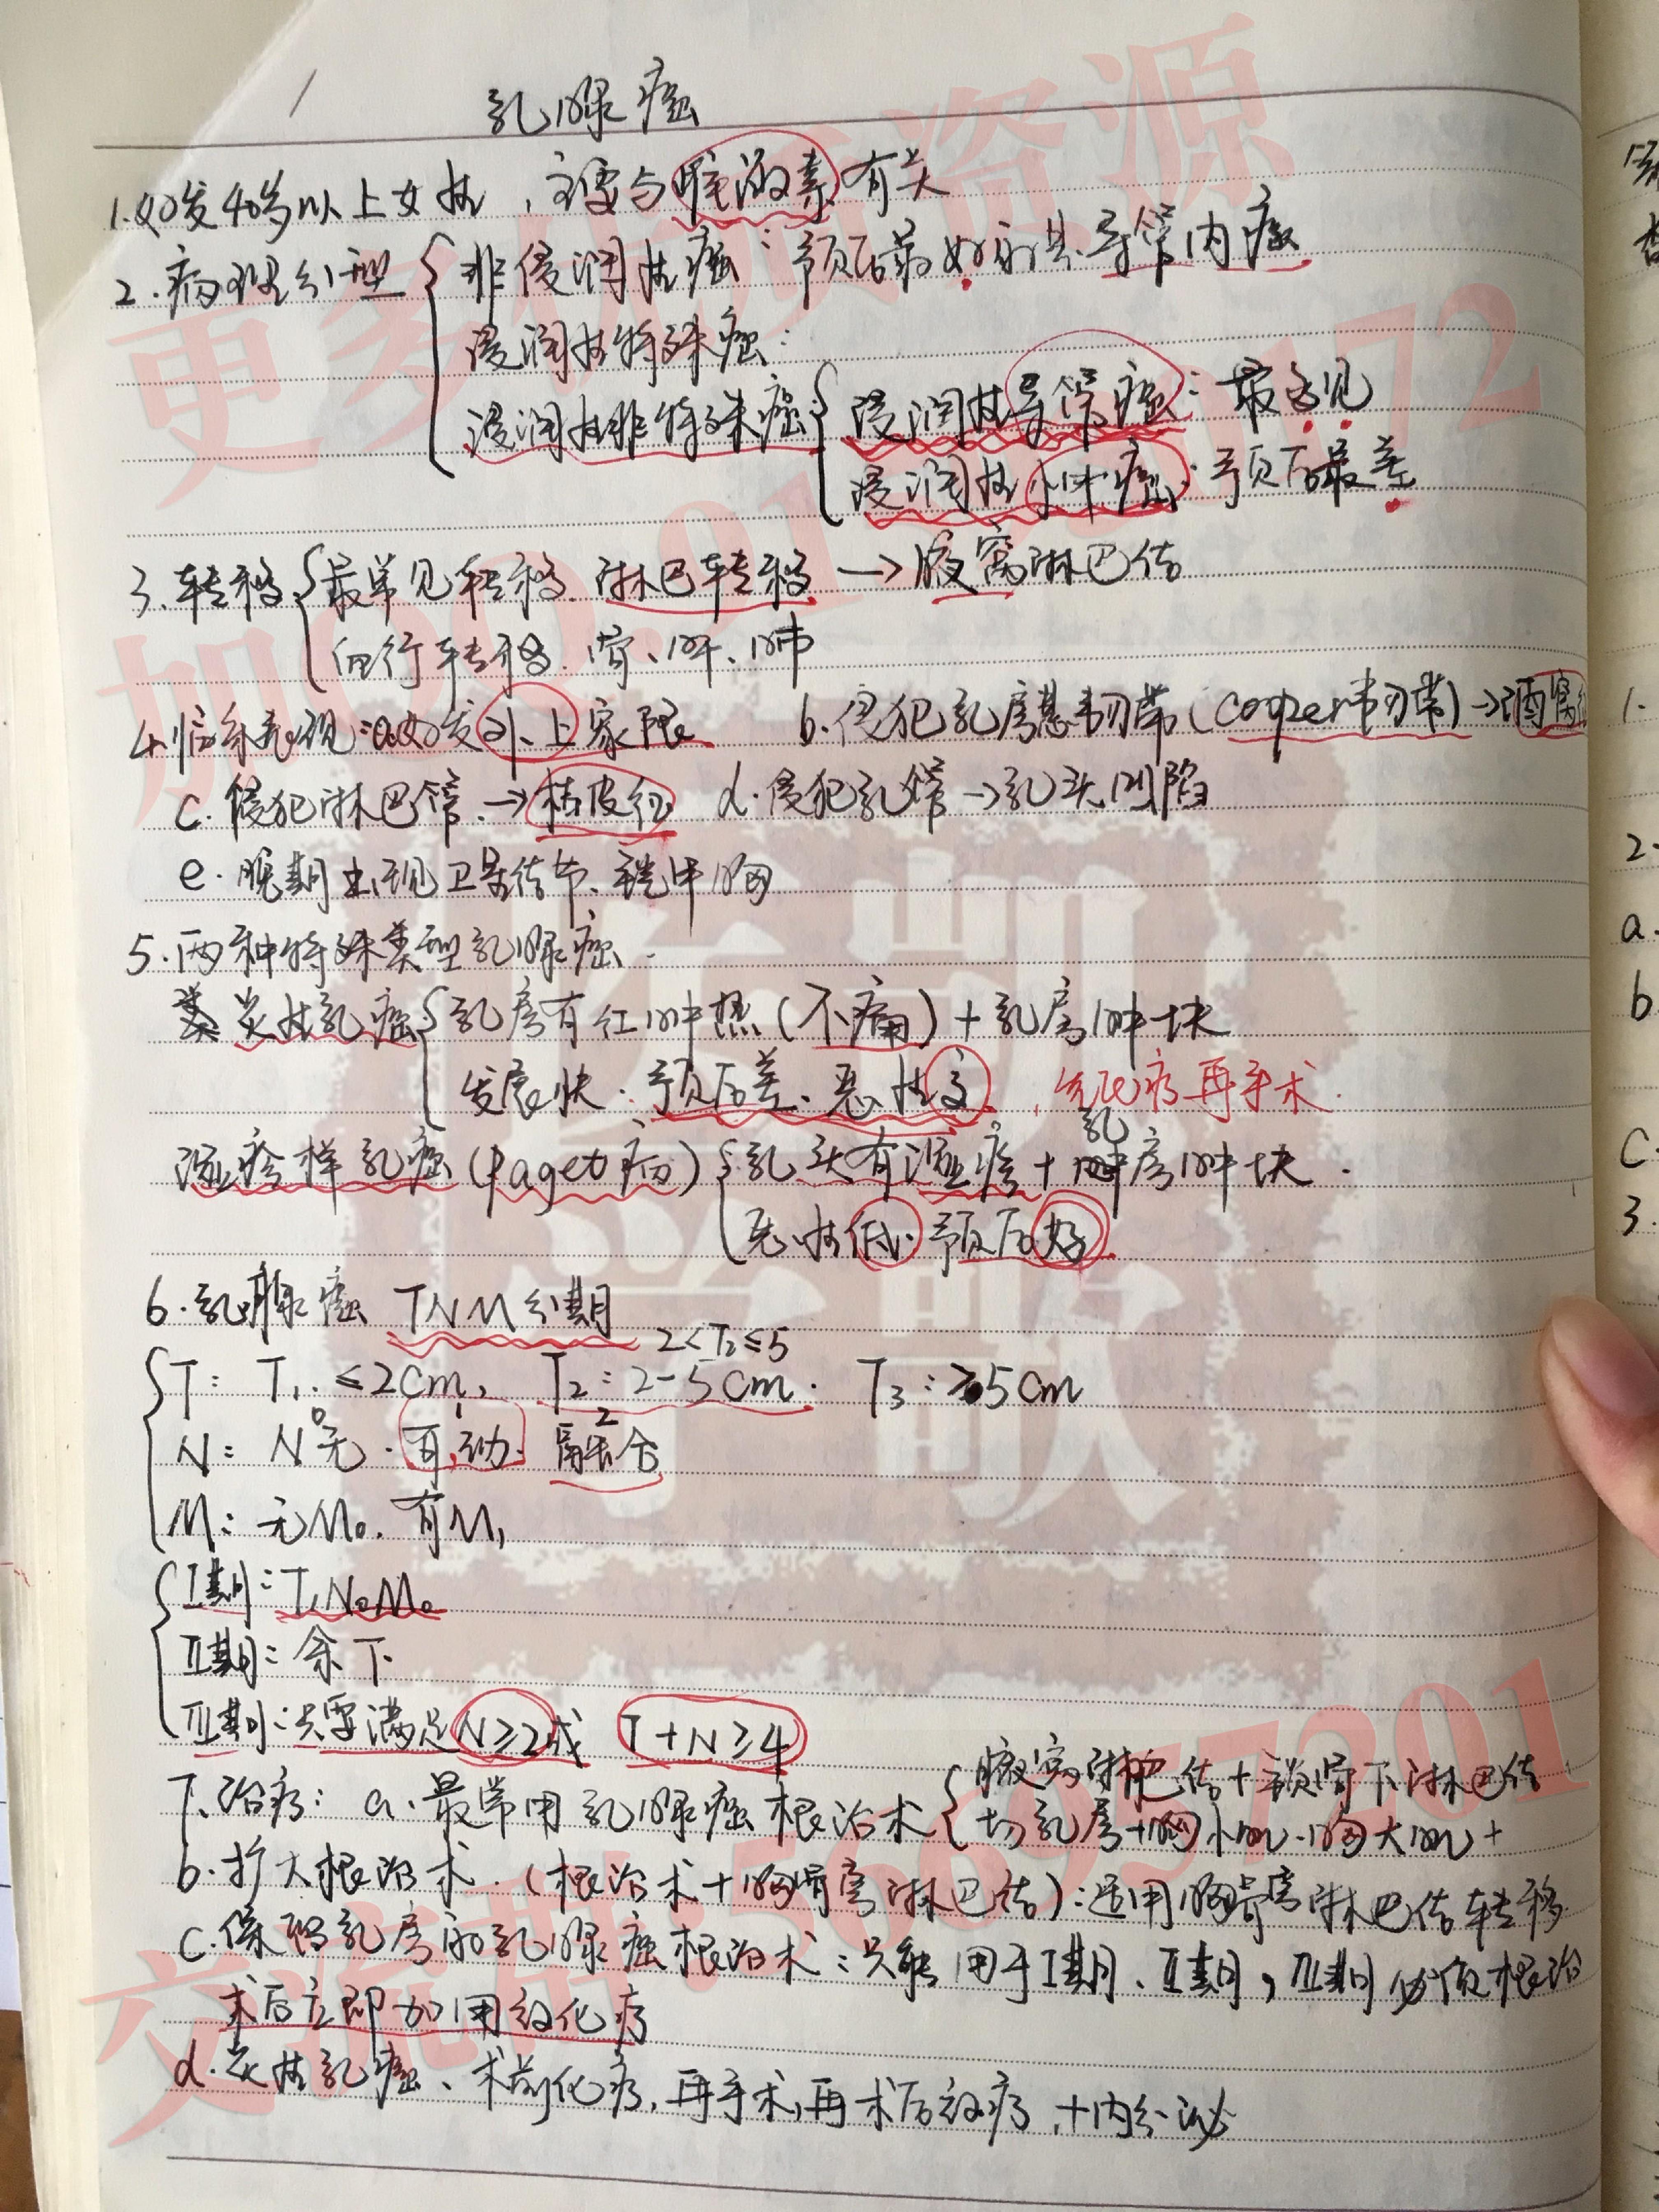 乳腺癌
1.好发40岁以上女性,主要与雌激素有关
2.病理分型 非浸润性癌:预后最好尤其导管内癌
浸润性特殊癌:
浸润性非特殊癌 浸润性导管癌:最多见
浸润性小叶癌:预后最差
3.转移 最常见转移.淋巴转移→腋窝淋巴结
血行转移.骨、肝、肺
4.临床表现:a.好发外、上象限 b.侵犯乳房悬韧带(cooper韧带)→酒窝征
c.侵犯淋巴管.→桔皮征 d.侵犯乳管→乳头凹陷
e.晚期出现卫星结节、铠甲胸
5.两种特殊类型乳腺癌.
炎性乳癌 乳房有红肿热(不痛)+乳房肿块
发展快.预后差、恶性高.先化疗再手术.
湿疹样乳癌(paget病) 乳头有湿疹+乳房肿块.
恶性低.预后好
6.乳腺癌 TNM分期
2<T₂≤5
T: T₁.≤2cm, T₂:2-5cm. T₃:>5cm
N: N⁰无.可¹动.融²合
M: 无M₀.有M₁
I期:T₁N₀M₀
II期:余下
III期:只要满足N≥2或 T+N≥4
7.治疗: a.最常用乳腺癌根治术 腋窝淋巴结+锁骨下淋巴结
切乳房+胸小m.胸大m+
b.扩大根治术.(根治术+胸骨旁淋巴结):适用胸骨旁淋巴结转移
c.保留乳房的乳腺癌根治术:只能用于I期、II期,III期必做根治
术后立即加用放化疗
d.炎性乳癌、术前化疗,再手术,再术后放疗,+内分泌
更多 资源
加QQ:
医视
学歌
交流群:566957201
1.
2.
a.
b.
C.
3.